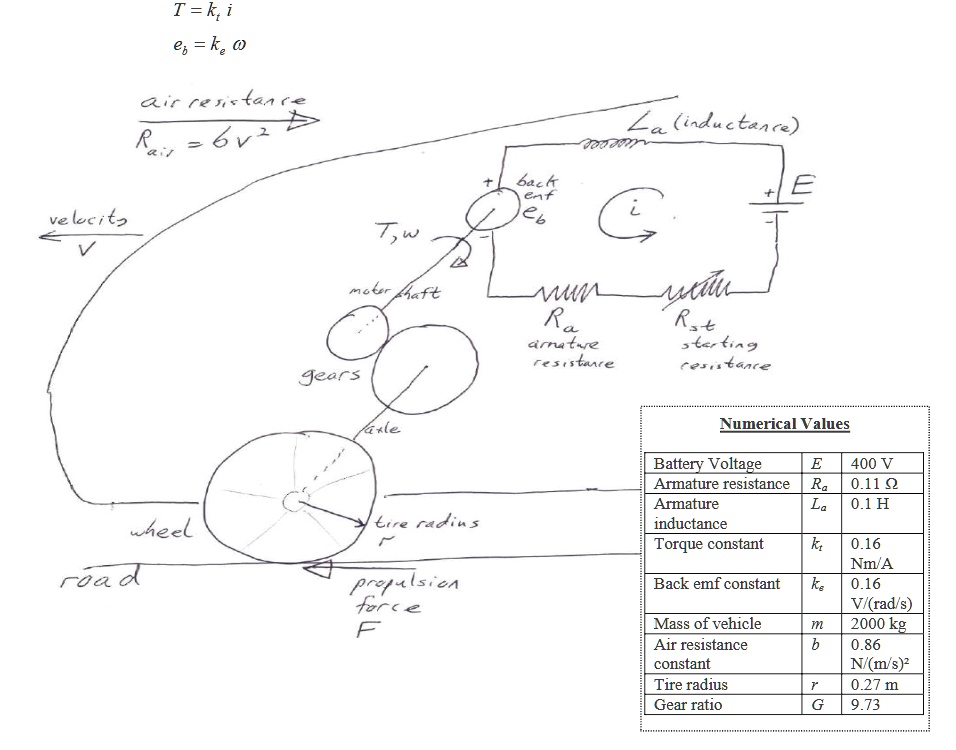 T = kₜ i
e_b = kₑ ω
air resistance
R_air = bv²
velocity
v
L_a (inductance)
+ back
emf
e_b
-
i
+ E
-
T, ω
motor shaft
R_a
armature
resistance
R_st
starting
resistance
gears
axle
wheel
tire radius
r
road
propulsion
force
F
Numerical Values
Battery Voltage E 400 V
Armature resistance Rₐ 0.11 Ω
Armature Lₐ 0.1 H
inductance
Torque constant kₜ 0.16
Nm/A
Back emf constant kₑ 0.16
V/(rad/s)
Mass of vehicle m 2000 kg
Air resistance b 0.86
constant N/(m/s)²
Tire radius r 0.27 m
Gear ratio G 9.73